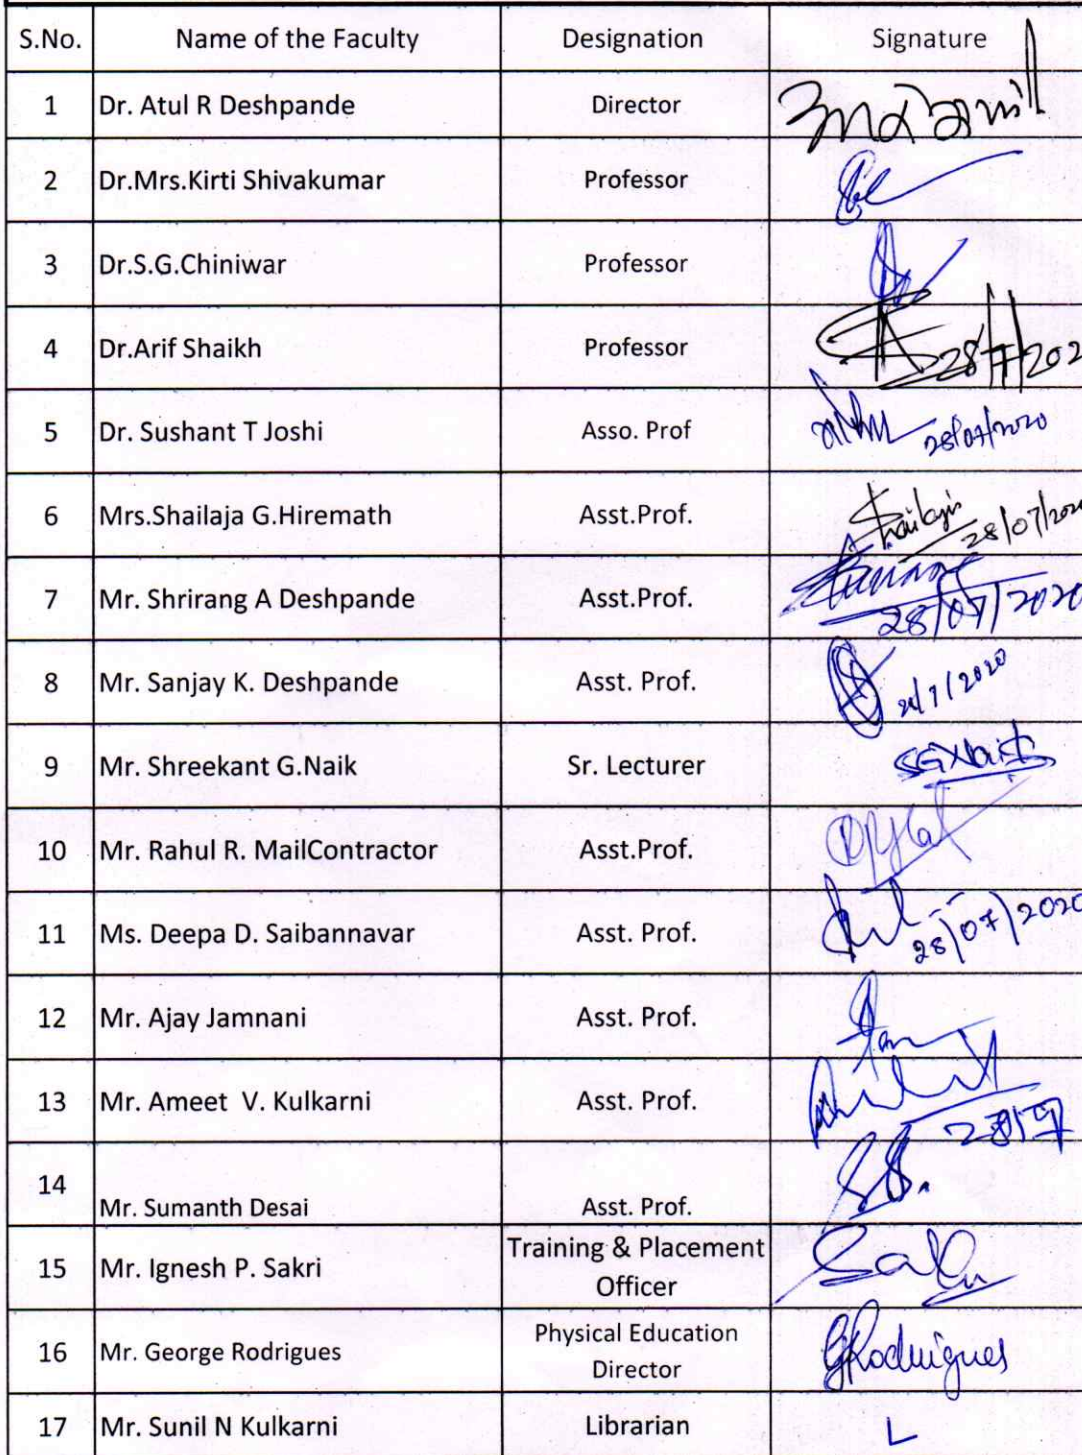 S.No. Name of the Faculty Designation Signature
1 Dr. Atul R Deshpande Director
2 Dr.Mrs.Kirti Shivakumar Professor
3 Dr.S.G.Chiniwar Professor
4 Dr.Arif Shaikh Professor 28/7/202
5 Dr. Sushant T Joshi Asso. Prof 28/07/2020
6 Mrs.Shailaja G.Hiremath Asst.Prof. 28/07/2020
7 Mr. Shrirang A Deshpande Asst.Prof. 28/07/2020
8 Mr. Sanjay K. Deshpande Asst. Prof. /7/2020
9 Mr. Shreekant G.Naik Sr. Lecturer SGNaik
10 Mr. Rahul R. MailContractor Asst.Prof.
11 Ms. Deepa D. Saibannavar Asst. Prof. 28/07/2020
12 Mr. Ajay Jamnani Asst. Prof.
13 Mr. Ameet V. Kulkarni Asst. Prof. 28/7
14 Mr. Sumanth Desai Asst. Prof.
15 Mr. Ignesh P. Sakri Training & Placement
Officer
16 Mr. George Rodrigues Physical Education
Director GRodrigues
17 Mr. Sunil N Kulkarni Librarian